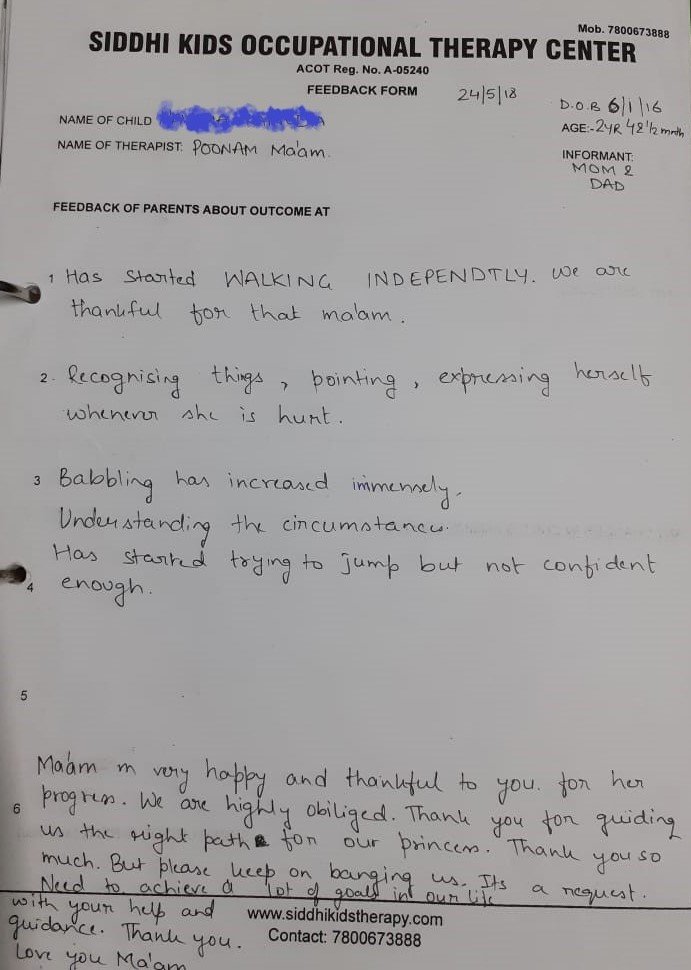 Mob. 7800673888
SIDDHI KIDS OCCUPATIONAL THERAPY CENTER
ACOT Reg. No. A-05240
FEEDBACK FORM
24/5/18
D.O.B 6/1/16
NAME OF CHILD
AGE:-2YR 4 & 1/2 mnth
NAME OF THERAPIST: POONAM Ma'am.
INFORMANT:
MOM &
DAD
FEEDBACK OF PARENTS ABOUT OUTCOME AT
1 Has Started WALKING INDEPENDTLY. We are
thankful for that ma'am.
2. Recognising things, pointing, expressing herself
whenever she is hurt.
3 Babbling has increased immensely.
Understanding the circumstances.
Has started trying to jump but not confident
4 enough.
5
Ma'am m very happy and thankful to you. for her
progress. We are highly obiliged. Thank you for guiding
6
us the right path for our princess. Thank you so
much. But please keep on banging us. Its a request.
Need to achieve a lot of goals in our life
with your help and
www.siddhikidstherapy.com
guidance. Thank you.
Contact: 7800673888
Love you Ma'am